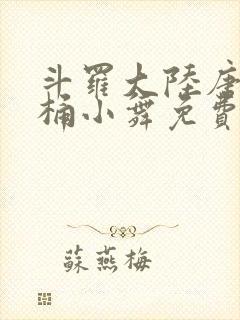 斗羅大陸唐
桶小舞免費
蘇燕梅